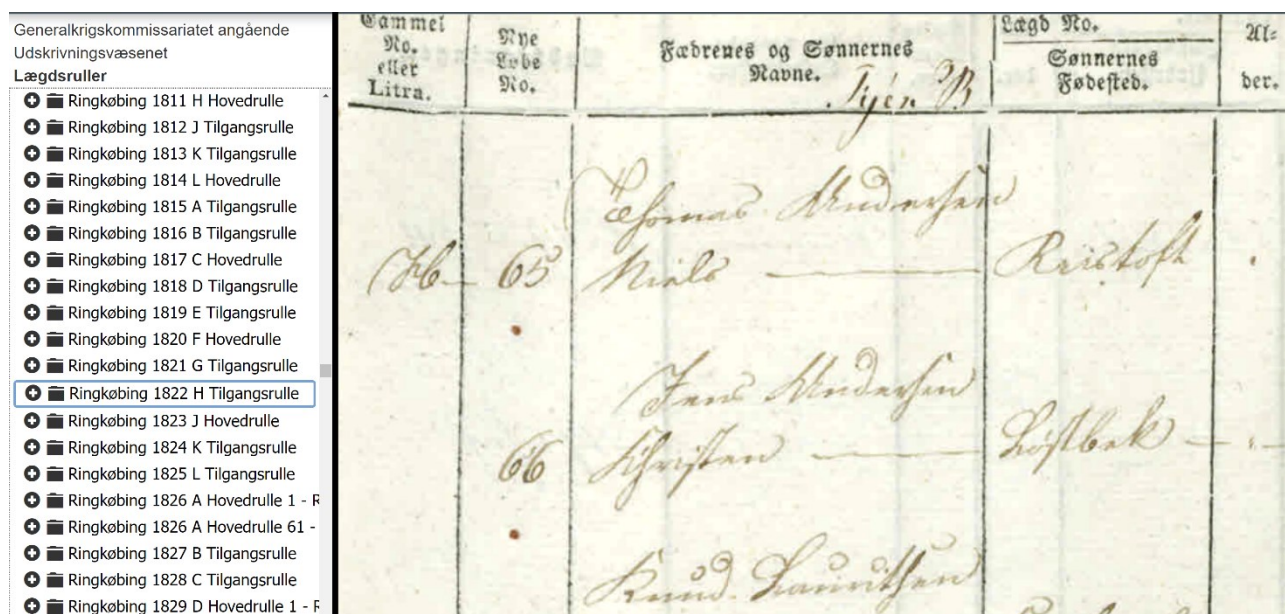 Generalkrigskommissariatet angående
Udskrivningsvæsenet
Lægdsruller
Ringkøbing 1811 H Hovedrulle
Ringkøbing 1812 J Tilgangsrulle
Ringkøbing 1813 K Tilgangsrulle
Ringkøbing 1814 L Hovedrulle
Ringkøbing 1815 A Tilgangsrulle
Ringkøbing 1816 B Tilgangsrulle
Ringkøbing 1817 C Hovedrulle
Ringkøbing 1818 D Tilgangsrulle
Ringkøbing 1819 E Tilgangsrulle
Ringkøbing 1820 F Hovedrulle
Ringkøbing 1821 G Tilgangsrulle
Ringkøbing 1822 H Tilgangsrulle
Ringkøbing 1823 J Hovedrulle
Ringkøbing 1824 K Tilgangsrulle
Ringkøbing 1825 L Tilgangsrulle
Ringkøbing 1826 A Hovedrulle 1 - R
Ringkøbing 1826 A Hovedrulle 61 -
Ringkøbing 1827 B Tilgangsrulle
Ringkøbing 1828 C Tilgangsrulle
Ringkøbing 1829 D Hovedrulle 1 - R
Gammel
No.
eller
Litra.
Nye
Løbe
No.
Fædrenes og Sønnernes
Navne.
Lægd No.
Sønnernes
Fødested.
Al-
der.
Thomas Andersen
65 Niels — Reistoft
Jens Andersen
66 Christen — Løstbek —
Knud Lauritsen